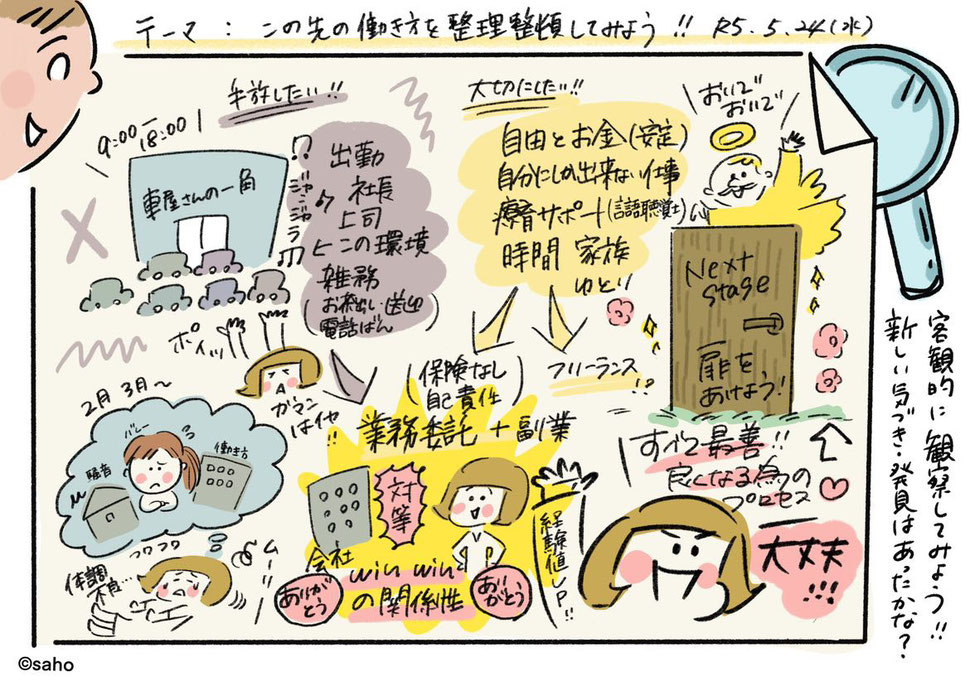 テーマ : この先の働き方を整理整頓してみよう!! R5.5.24(水)
手放したい!!
9:00〜18:00
車屋さんの一角
ジャンジャラ
出勤
社長
上司
この環境
雑務
(お茶出し 送迎
電話ばん)
ポイッ
ガマン
はイヤ!!
2月 3月〜
バレー
騒音
働き方
フワフワ
体調
不良…
ムー
大切にしたい!!
自由とお金(安定)
自分にしか出来ない仕事
療育サポート(言語聴覚士)
時間 家族
ゆとり
(保険なし
自己責任)
フリーランス!?
業務委託+副業
対等
会社
win win
の関係性
ありがとう
ありがとう
経験値UP!!
おいで
おいで
Next
stage
扉を
あけよう!
すべて最善!!
良くなる為の
プロセス
大丈夫
!!!
客観的に観察してみよう!!
新しい気づき・発見はあったかな?
©saho